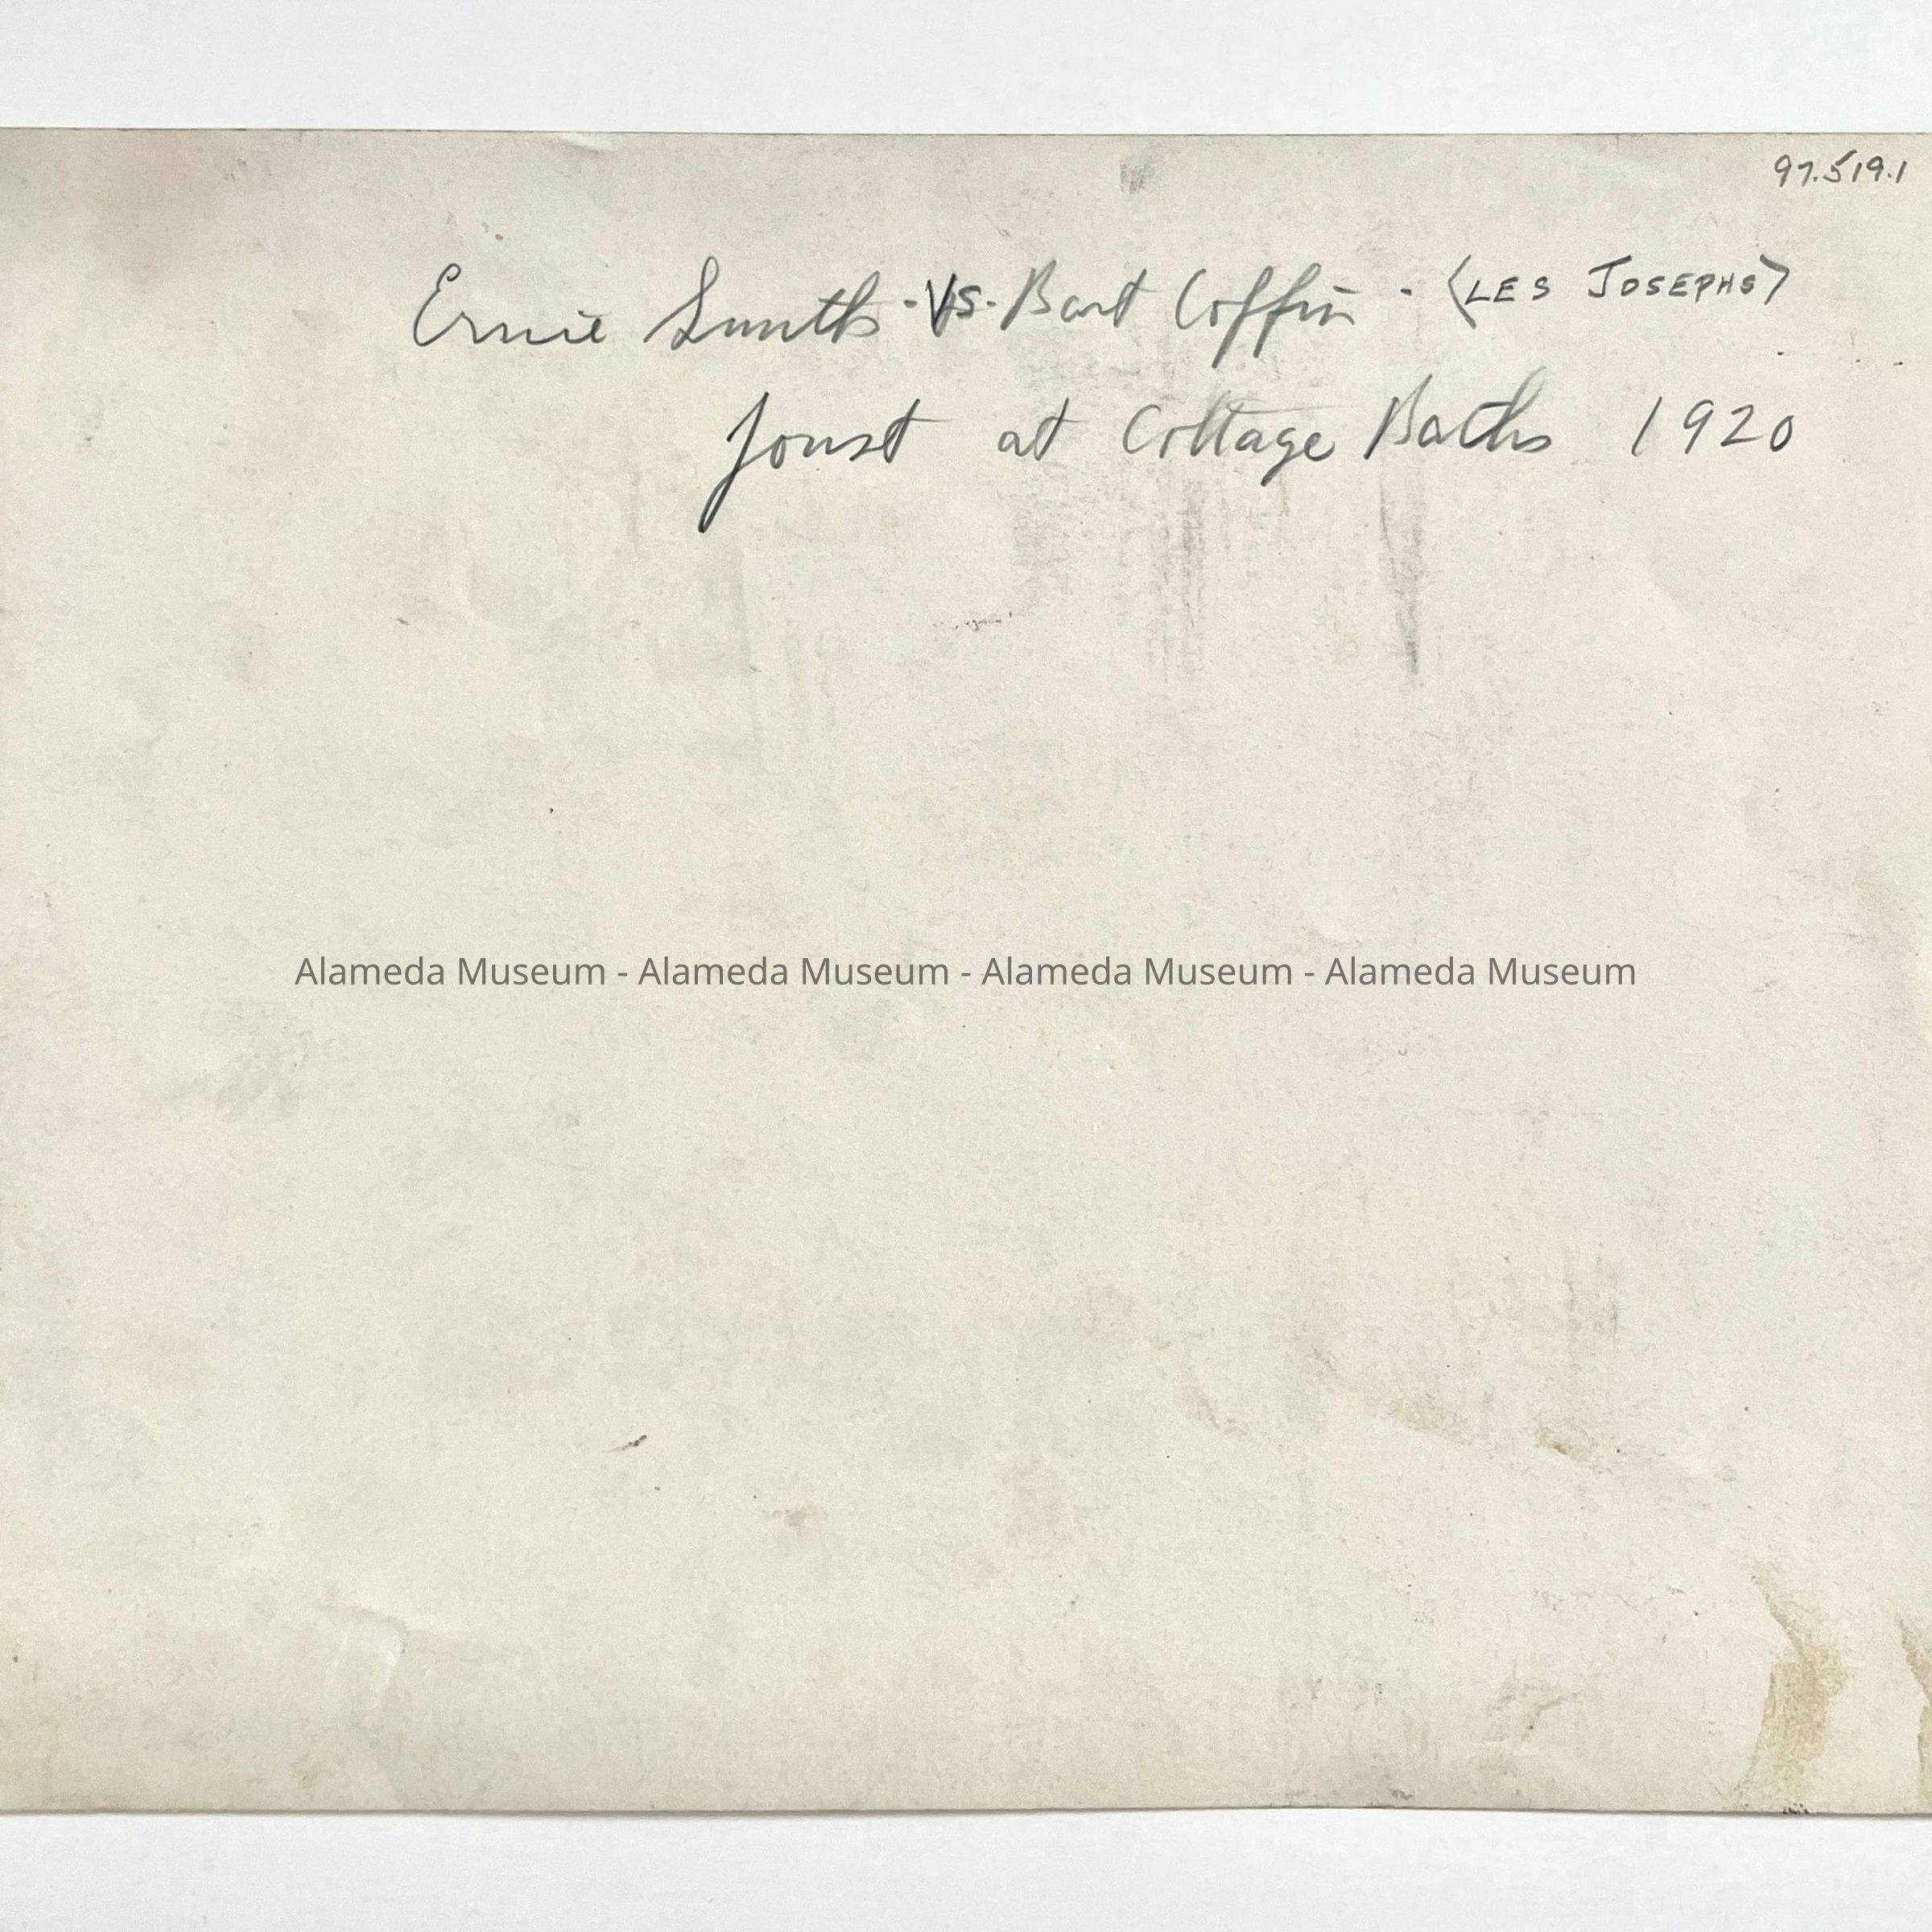 97.519.1
Ernie Smith - VS. Bart Coffin - (LES JOSEPHS)
Joust at Cottage Baths 1920
Alameda Museum - Alameda Museum - Alameda Museum - Alameda Museum